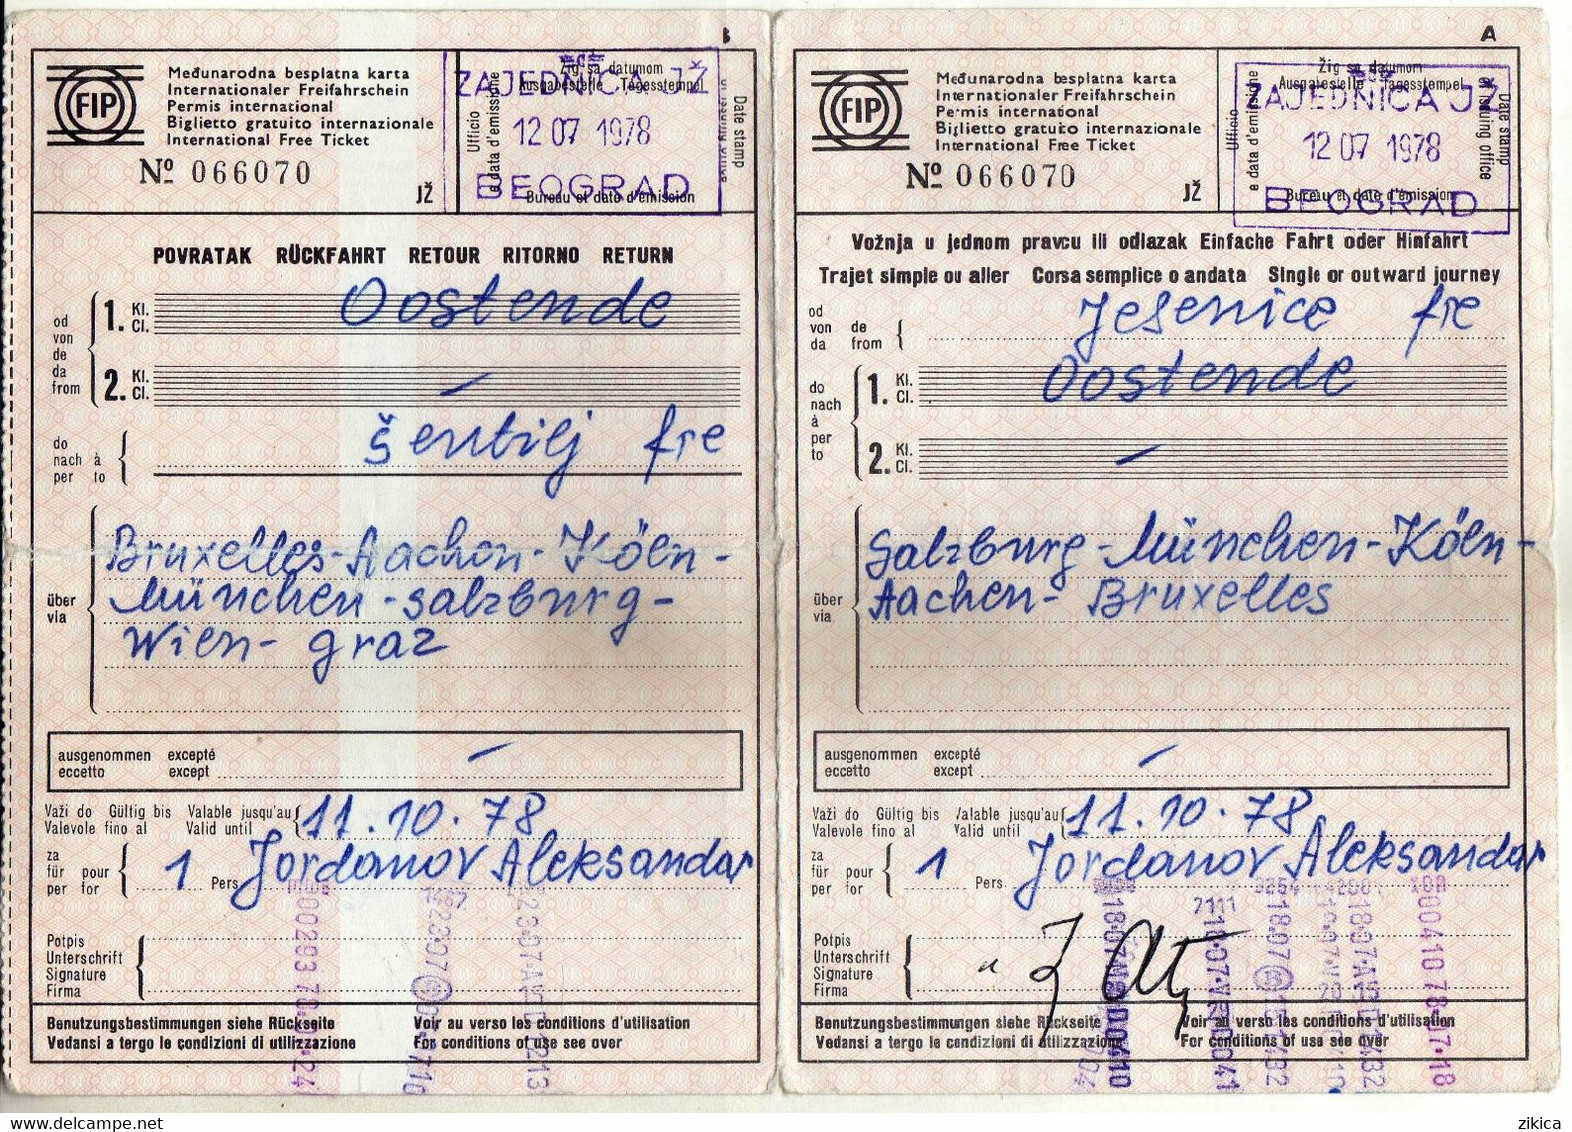 B
FIP
Međunarodna besplatna karta
Internationaler Freifahrschein
Permis international
Biglietto gratuito internazionale
International Free Ticket
Nº 066070
JŽ
Ufficio
e data d'emissione
Žig sa datumom
Ausgabestelle Tagesstempel
ZAJEDNICA JŽ
12 07 1978
BEOGRAD
Bureau et date d'émission
Date stamp
POVRATAK RÜCKFAHRT RETOUR RITORNO RETURN
od
von
de
da
from
1. Kl. Cl. Oostende
2. Kl. Cl. –
do
nach à
per to
Šentilj fre
über
via
Bruxelles-Aachen-Köln-
München-Salzburg-
Wien-Graz
ausgenommen excepté
eccetto except –
Važi do Gültig bis Valable jusqu'au
Valevole fino al Valid until
11.10.78
za
für pour
per for
1 Pers
Jordanov Aleksandar
Potpis
Unterschrift
Signature
Firma
Benutzungsbestimmungen siehe Rückseite
Voir au verso les conditions d'utilisation
Vedansi a tergo le condizioni di utilizzazione
For conditions of use see over
A
FIP
Međunarodna besplatna karta
Internationaler Freifahrschein
Permis international
Biglietto gratuito internazionale
International Free Ticket
Nº 066070
JŽ
Ufficio
e data d'emissione
Žig sa datumom
Ausgabestelle Tagesstempel
ZAJEDNICA JŽ
12 07 1978
BEOGRAD
Bureau et date d'émission
Date stamp
of issuing office
Vožnja u jednom pravcu ili odlazak Einfache Fahrt oder Hinfahrt
Trajet simple ou aller Corsa semplice o andata Single or outward journey
od
von de
da from
Jesenice fre
do
nach
à
per
to
1. Kl. Cl. Oostende
2. Kl. Cl. –
über
via
Salzburg-München-Köln-
Aachen-Bruxelles
ausgenommen excepté
eccetto except –
Važi do Gültig bis Valable jusqu'au
Valevole fino al Valid until
11.10.78
za
für pour
per for
1 Pers
Jordanov Aleksandar
Potpis
Unterschrift
Signature
Firma
Benutzungsbestimmungen siehe Rückseite
Voir au verso les conditions d'utilisation
Vedansi a tergo le condizioni di utilizzazione
For conditions of use see over
www.delcampe.net
zikica